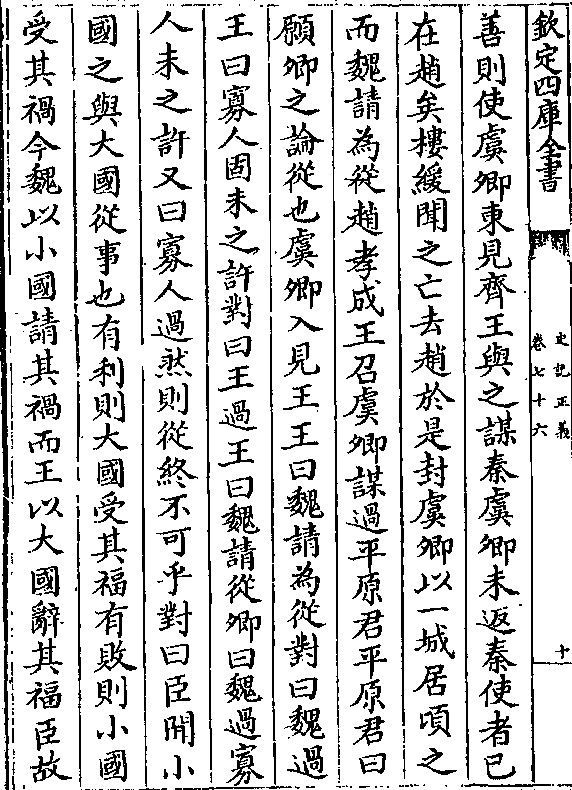 欽定四庫全書
史記正義
卷七十六
十
善則使虞卿東見齊王與之謀秦虞卿未返秦使者已
在趙矣樓緩聞之亡去趙於是封虞卿以一城居頃之
而魏請為從趙孝成王召虞卿謀過平原君平原君曰
願卿之論從也虞卿入見王王曰魏請為從對曰魏過
王曰寡人固未之許對曰王過王曰魏請從卿曰魏過寡
人未之許又曰寡人過然則從終不可乎對曰臣聞小
國之與大國從事也有利則大國受其福有敗則小國
受其禍今魏以小國請其禍而王以大國辭其福臣故